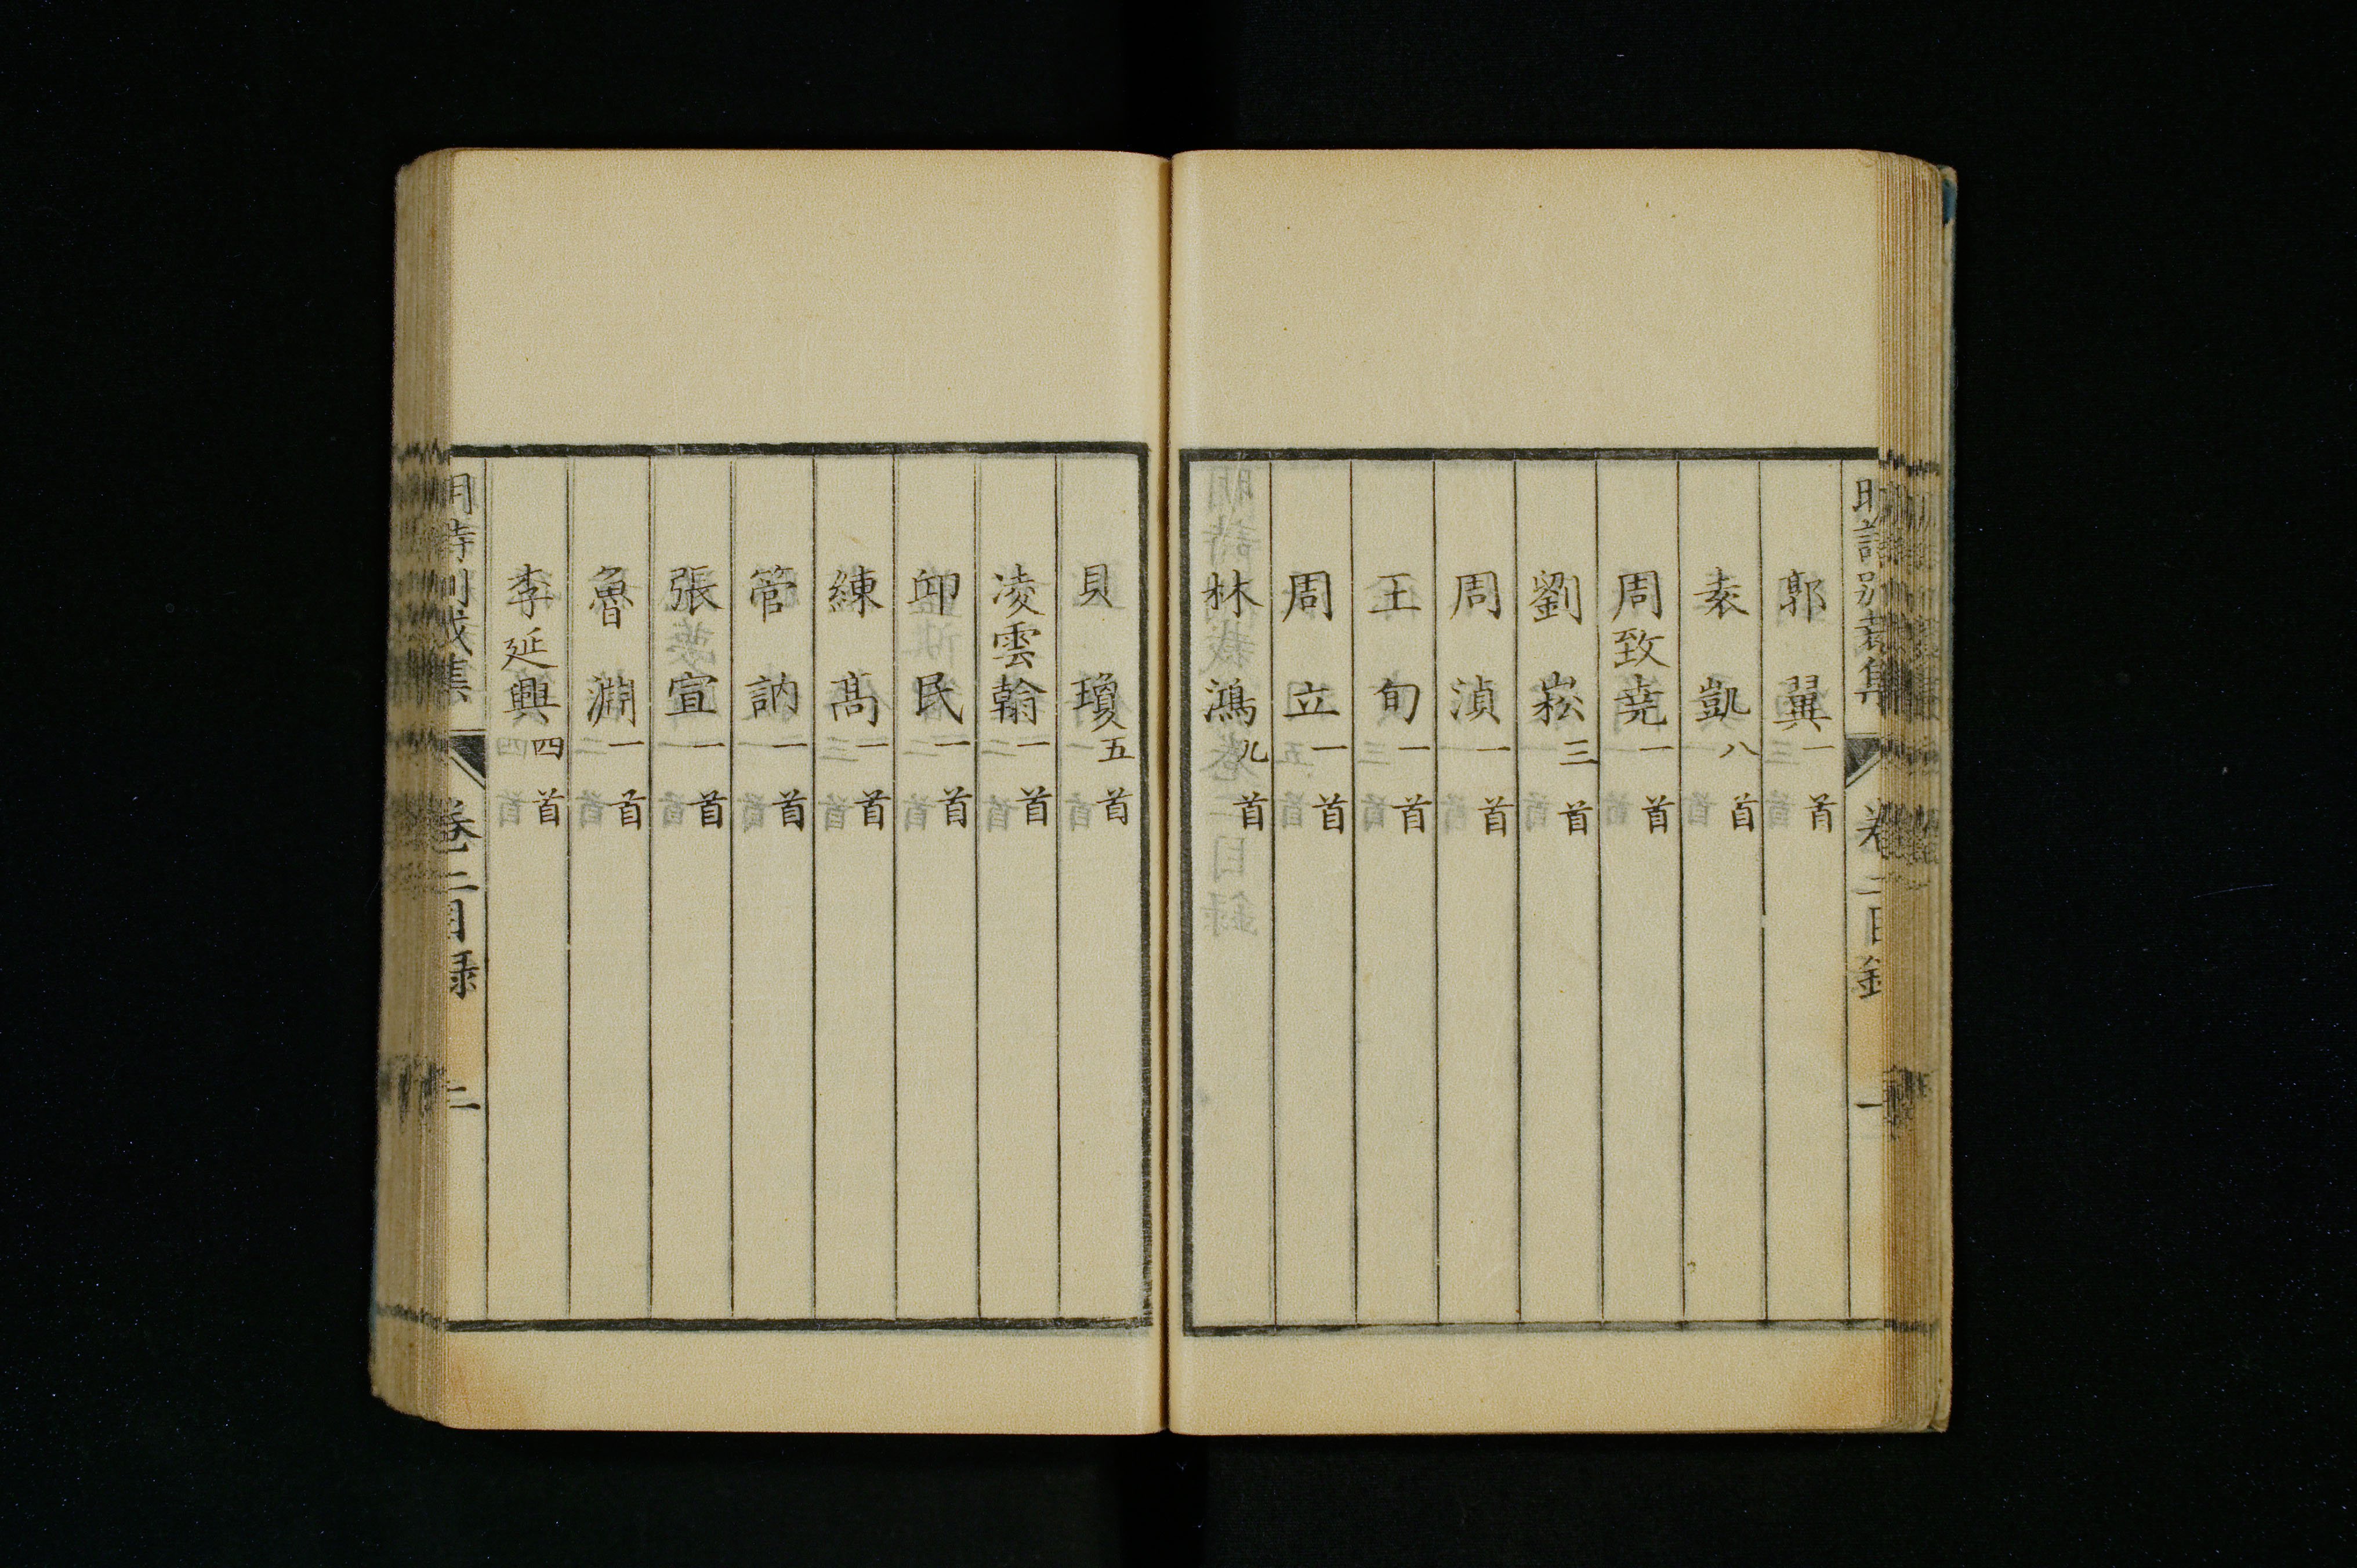 明詩別裁集 卷二目錄 一
郭翼一首
袁凱八首
周致堯一首
劉崧三首
周湞一首
王旬一首
周立一首
林鴻九首
貝瓊五首
凌雲翰一首
邱民一首
練高一首
管訥一首
張宣一首
魯淵一首
李延興四首
明詩別裁集 卷二目錄 二